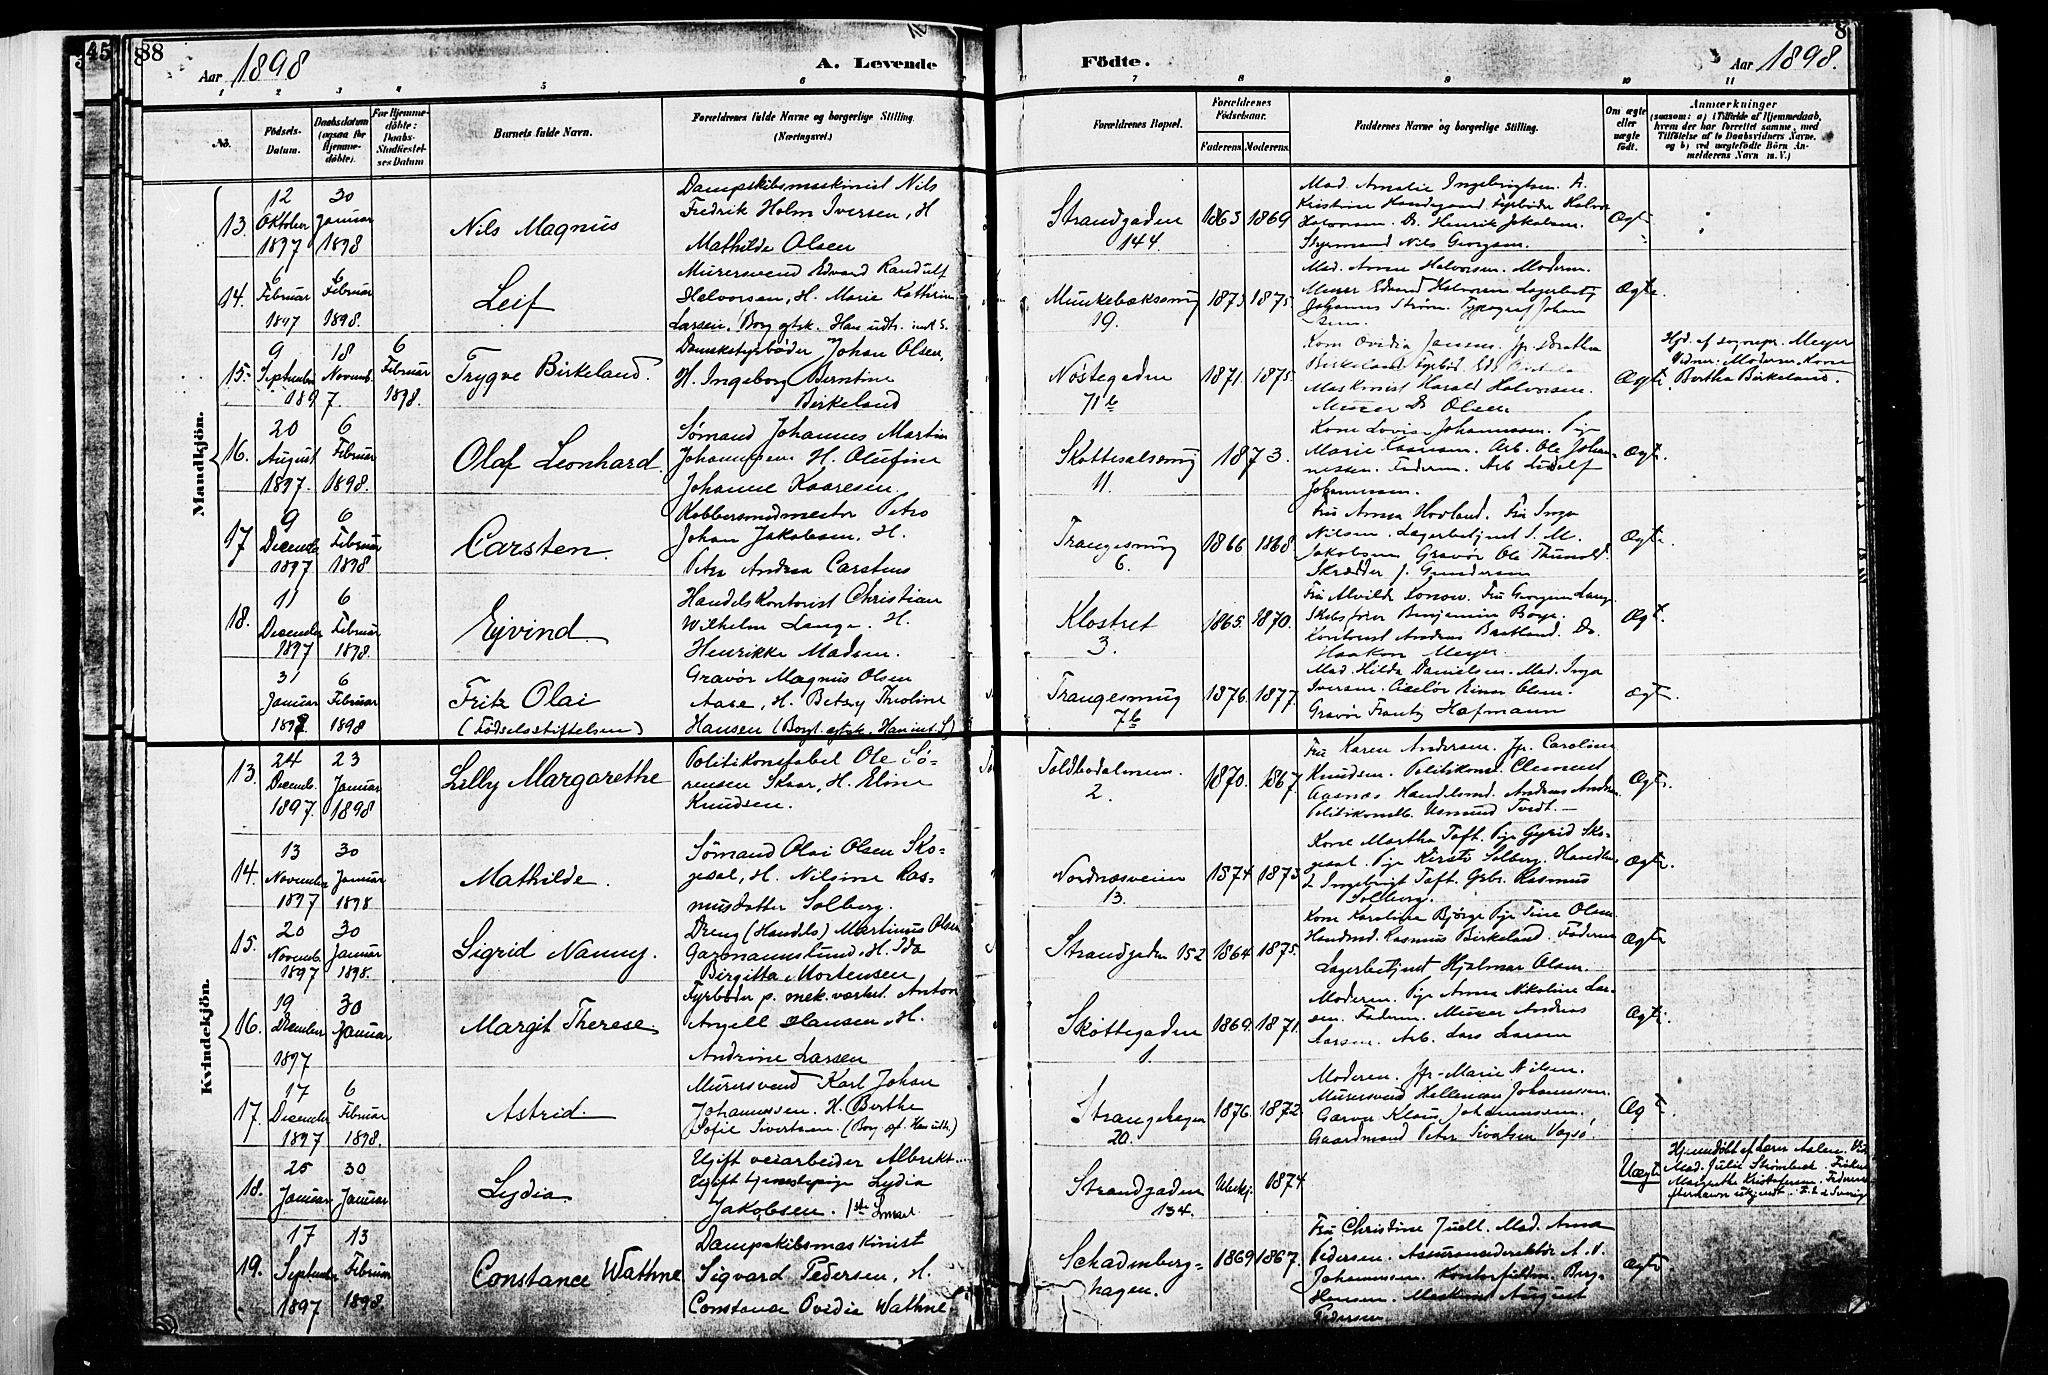 45
88
Aar 1898
A. Levende
Födte.
Aar 1898.
8
1 2 3 4 5 6 7 8 9 10 11
No.
Födsels-
Datum.
Daabsdatum
(ogsaa for
Hjemme-
döbte).
For Hjemme-
döbte:
Daabs-
Stadfæstel-
ses Datum
Barnets fulde Navn.
Forældrenes fulde Navne og borgerlige Stilling.
(Næringsvei.)
Forældrenes Bopæl.
Forældrenes
Födselsaar.
Faderens. Moderens.
Faddernes Navne og borgerlige Stilling.
Om ægte
eller
uægte
født.
Anmærkninger
(saasom: a) i Tilfælde af Hjemmedaab,
hvem der har forrettet samme, med
Tilföielse af to Daabsvidners Navne,
og b) ved uægtefödte Börn An-
melderens Navn m. V.)
Mandkjön.
13.
12
Oktober
1897
30
Januar
1898
Nils Magnus
Dampskibsmaskinist Nils
Fredrik Holm Iversen, H
Mathilde Olsen
Strandgaden
144.
1863 1869
Mad. Amalie Ingebrigtsen. Fr.
Kristine Fyrbøder Halvor
Halvorsen. Do. Henrik Jakobsen.
Styrmand Nils Georgsen.
Ægte
14.
6
Februar
1897
6
Februar
1898.
Leif
Murersvend Edvard Randulf
Halvorsen, H. Marie Kathrine
Larsen.
Munkebæksmug
19.
1873 1875.
Mad. Anna Halvorsen. Moderen.
Murer Edvard Halvorsen Lagerbetj
Johannes Strøm. Typograf Johan
Ægte.
15.
9
September
1897.
18
Novemb.
6
Februar
1898.
Trygve Birkeland.
Johan Olsen,
H. Ingeborg Berntine
Birkeland
Nøstegaden
71 b
1871. 1875.
Kone Ovidia Jansen. Jfr. Dorthea
Birkeland
Maskinist Harald Halvorsen.
Murer Olsen
Ægte.
Hjd. af sognepr. Meyer
Vidner: Moderen. Kone
Bertha Birkeland.
16.
20
August
1897.
6
Februar
1898.
Olaf Leonhard.
Sømand Johannes Martin
Johannessen. H. Olufine
Johanne Kaaresen.
Skottesalsmug
11.
1873.
Kone Lovise Johannessen. Pige
Marie Kaaresen. Arb. Ole Johan-
nessen. Faderen. Arb Ludolf
Johannessen.
Ægte.
17
9
Decembe
1897
6
Februar
1898
Carsten.
Kobbersmedmester Petro
Johan Jakobsen, H.
Petra Andrea Carstens
Trangesmug
6.
1866 1868
Fru Anna Hovland. Fru Inga
Nilsen. Lagerbetjent S. M.
Jakobsen Gravør Ole Thunold.
Skrædder J. Gundersen
Ægte.
18.
11
December
1897
6
Februar
1898.
Ejvind.
Handelskontorist Christian
Wilhelm Lange. H.
Henrikke Madsen.
Klostret
3.
1865. 1870.
Fru Alvilde Fru Georgine Lange.
Skibsfører Benjamin Borge.
Kontorist Andreas Do.
Haakon Meyer.
Ægt.
31
Januar
1898
6
Februar
1898
Fritz Olai
(Fødselsstiftelsen)
Gravør Magnus Olsen
Aase, H. Betzy Theoline
Hansen
Trangesmug
7 b
1876. 1877.
Mad. Hilda Danielsen. Mad. Inga
Iversen. Ciselør Einar Olsen.
Gravør Frantz Hofmann
Ægte.
Kvindekjön.
13.
24
Decemb.
1897.
23
Januar
1898
Lilly Margarethe
Politikonstabel Ole Sö-
rensen Skaar, H. Eline
Knudsen.
Toldbodalmen.
2.
1870. 1867.
Fru Karen Andersen. Jfr. Caroline
Knudsen. Politikonst. Clement
Aasnæs Handelsmd. Andreas Andrea
Politikonstb. Asmund Tvedt.
Ægte.
14.
13
November
1897
30
Januar
1898
Mathilde.
Sømand Olai Olsen Sko-
gesal, H. Niline Ras-
musdatter Solberg.
Nordnæsveien
13.
1874 1873
Kone Martha Toft. Pige Gyrid Sko-
gesal. Pige Kirsti Solberg. Handlen
Ingebrigt Toft. Gbr. Rasmus
Solberg.
Ægte.
15.
20
Novemb.
1897
30
Januar
1898.
Sigrid Nanny.
Dreng (Handels) Martinus Olsen
Garmannslund. H. Ida
Birgitta Mortensen
Strandgaden 152
1864 1875.
Kone Karolina Bjørge Pige Tine Olsen
Handmd. Rasmus Birkeland. Faderen
Lagerbetjent Hjalmar Olsen.
Ægte
16.
19
December
1897
30
Januar
Margit Therese.
Fyrbøder p. mek. værkst. Anton
Angell Hansen, H.
Andrine Larsen
Skottegaden
1.
1869. 1871.
Moderen. Pige Anna Nikoline Lar-
sen. Faderen. Murer Andreas
Larsen. Arb. Lars Larsen
Ægte.
17.
17
December
1897
6
Februar
1898.
Astrid.
Murersvend Karl Johan
Johannessen. H. Berthe
Sofie Sivertsen.
Strangehagen
20.
1876. 1872.
Moderen. Jfr. Marie Nilsen.
Murersvend Johannessen.
Garver Klaus Johannessen.
Gaardmand Peter Sivertsen Vagsø.
Ægt.
18.
25
Januar
30
Januar
Lydia
Ugift veiarbeider Albrekt
Ugift tjenestepige Lydia
Jakobsen.
Strandgaden
134.
1874
Uægte
Hjemmedøbt af lærer
Mad. Julie Strømbeck.
Margrethe Kristofersen.
19.
17
September
1897
13
Februar
1898.
Constance Wathne
Dampskibsmaskinist
Sigvard Pedersen, H.
Constance Ovidia Wathne.
Schadenberg-
hagen.
1869 1867.
Fru Christine Juell. Mad. Anna
Pedersen. Assurancedirektør A. V.
Johannesen. Kontorfuldm. Berg.
Hansen. Maskinist August
Pedersen.
Ægte